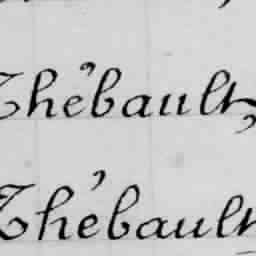 Thébault,
Thébault